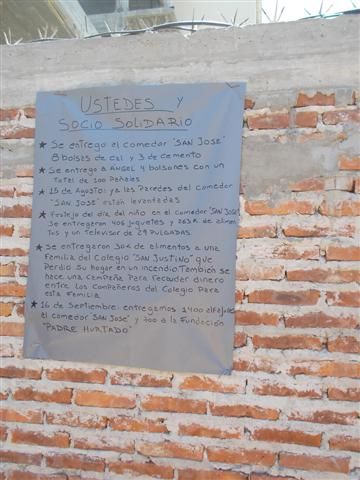 USTEDES y
SOCIO SOLIDARIO
★ Se entrego el comedor "SAN JOSE"
8 bolsas de cal y 3 de cemento
★ Se entrego a ANGEL 4 bolsones con un
total de 300 Pañales
★ 15 de AGOSTO: ya las Paredes del comedor
"SAN JOSE" están levantadas
★ Festejo del día del niño en el comedor "SAN JOSE"
Se entregaron 406 juguetes y 263 K de alimen
tos y un televisor de 29 PULGADAS
★ Se entregaron 30K de alimentos a una
Familia del Colegio "SAN JUSTINO" que
Perdio su hogar en un incendio. También se
hace una campaña para recaudar dinero
entre los compañeros del colegio para
esta familia
★ 16 de Septiembre: entregamos 1400 alfajores
el comedor "SAN JOSE" y 700 a la Fundación
"PADRE HURTADO"